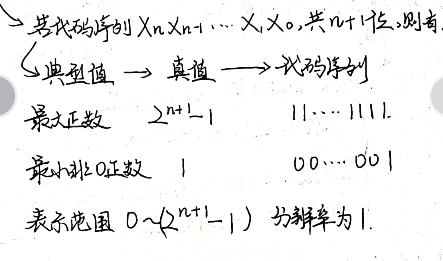 若代码序列 Xn Xn-1 ‥‥ X1 X0, 共n+1位, 则有
典型值 → 真值 → 代码序列
最大正数 2^{n+1}-1 11‥‥1111.
最小非0正数 1 00‥‥001
表示范围 0~(2^{n+1}-1) 分辨率为1.